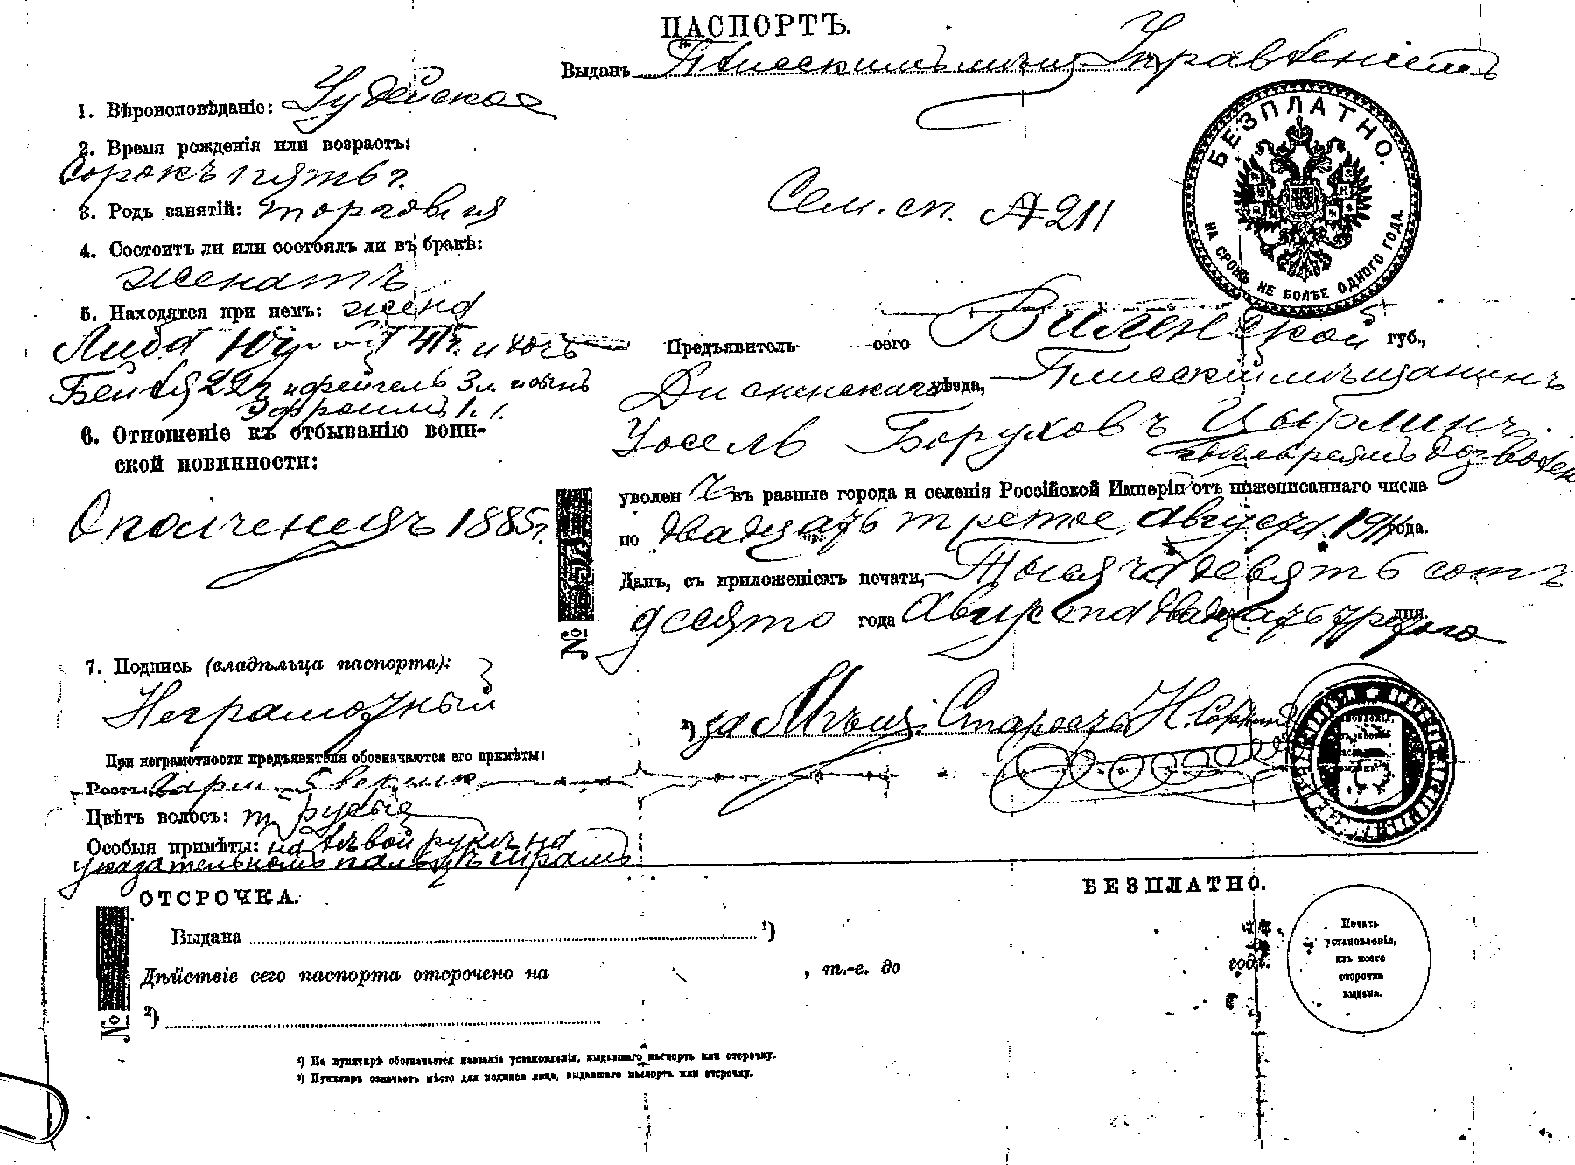 ПАСПОРТЪ.
Выданъ Плисскимъ мѣщ. Управленіемъ
1. Вѣроисповѣданіе: Іудейское
2. Время рожденія или возрастъ:
Сорокъ пять г.
3. Родъ занятій: торговля
4. Состоитъ ли или состоялъ ли въ бракѣ:
женатъ
5. Находятся при немъ: жена
Либа
и дочь
Эфроимъ 1 г.
6. Отношеніе къ отбыванію воин-
ской повинности:
Ополченецъ 1885 г.
7. Подпись (владѣльца паспорта):
Неграмотный
При неграмотности предъявителя обозначаются его примѣты:
Ростъ: 2 арш. 5 верш.
Цвѣтъ волосъ: т. русые
Особыя примѣты: на лѣвой рукѣ на
указательномъ пальцѣ шрамъ
БЕЗПЛАТНО.
НА СРОКЪ НЕ БОЛѢЕ ОДНОГО ГОДА.
Сем. сп. № 211
Предъявитель сего Виленской губ.,
Дисненскаго уѣзда, Плисскій мѣщанинъ
Іосель Боруховъ Цырлинъ
уволенъ въ разные города и селенія Россійской Имперіи отъ нижеписаннаго числа
по двадцать третье августа 1911 года.
Данъ, съ приложеніемъ печати, Тысяча девять сотъ
десято года Августа двадцать третьяго дня
№
за Мѣщ. Старосту Н.
ОТСРОЧКА.
БЕЗПЛАТНО.
Выдана ¹)
Дѣйствіе сего паспорта отсрочено на , т.-е. до года.
²)
№
Печать
установленія,
изъ коего
отсрочка
выдана.
¹) На пунктирѣ обозначается названіе установленія, выдавшаго паспортъ или отсрочку.
²) Пунктиръ означаетъ мѣсто для подписи лица, выдавшаго паспортъ или отсрочку.